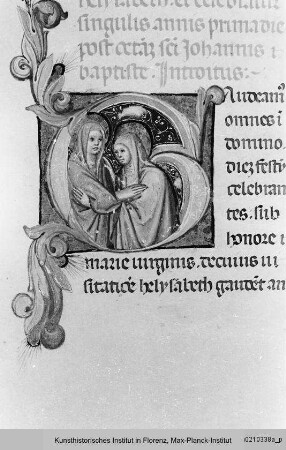 helysabeth et celebratur
singulis annis prima die
post octãs sci Johannis i
baptiste. Introitus:
Gaudeam9
omnes ĩ
domino.
diẽ festũ
celebran
tes. sub
honore i
marie uirginis. de cuius ui
sitatiõe helysabeth gaudẽt an
Kunsthistorisches Institut in Florenz, Max-Planck-Institut
fl210338a_p